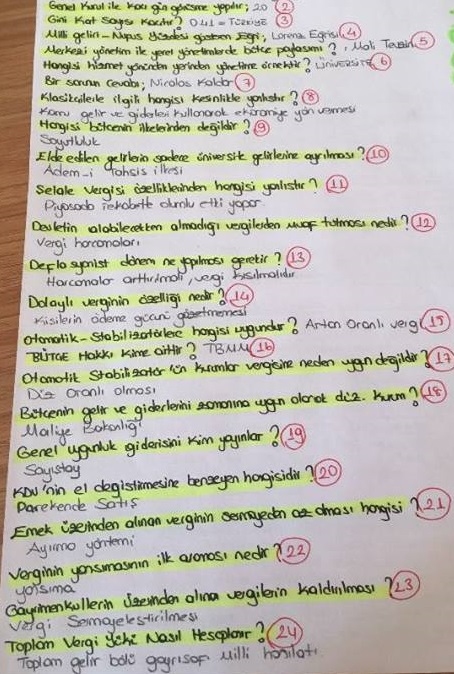 Genel Kurul ile kaç gün görüşme yapılır; 20 (2)
Gini Kat Sayısı Kaçtır? 0.41 = TÜRKİYE (3)
Milli gelir - Nüfus Yüzdesi gösteren Eğri; Lorenz Eğrisi (4)
Merkezi yönetim ile yerel yönetimlerde bütçe paylaşımı?; Mali Tevzin (5)
Hangisi hizmet yönünden yerinden yönetime örnektir? ÜNİVERSİTE (6)
Bir sorunun Cevabı; Nicolas Kaldor (7)
Klasikçilerle ilgili hangisi kesinlikle yanlıştır? (8)
Kamu gelir ve giderleri kullanarak ekonomiye yön vermesi
Hangisi bütçenin ilkelerinden değildir? (9)
Soyutluluk
Elde edilen gelirlerin sadece üniversite gelirlerine ayrılması? (10)
Adem-i Tahsis ilkesi
Şelale Vergisi özelliklerinden hangisi yanlıştır? (11)
Piyasada rekabette olumlu etki yapar.
Devletin alabilecekken almadığı vergilerden muaf tutması nedir? (12)
Vergi harcamaları
Deflasyonist dönem ne yapılması gerekir? (13)
Harcamalar arttırılmalı, vergi kısılmalıdır
Dolaylı verginin özelliği nedir? (14)
Kişilerin ödeme gücünü gözetmemesi
Otomatik-Stabilizatörlere hangisi uygundur? Artan Oranlı vergi (15)
BÜTÇE Hakkı Kime aittir? TBMM (16)
Otomatik Stabilizatör'ün kurumlar vergisine neden uygun değildir? (17)
Düz Oranlı olması
Bütçenin gelir ve giderlerini zamanına uygun olarak düz. kurum? (18)
Maliye Bakanlığı
Genel uygunluk                 kim yayınlar? (19)
Sayıştay
KDV'nin el değiştirmesine benzeyen hangisidir? (20)
Parekende Satış
Emek üzerinden alınan verginin sermayeden az olması hangisi? (21)
Ayırma yöntemi
Verginin yansımasının ilk aşaması nedir? (22)
yansıma
Gayrimenkullerin üzerinden alına vergilerin kaldırılması? (23)
Vergi Sermayeleştirilmesi
Toplam Vergi Yükü Nasıl Hesaplanır? (24)
Toplam gelir bölü gayrisafi Milli hasılatı